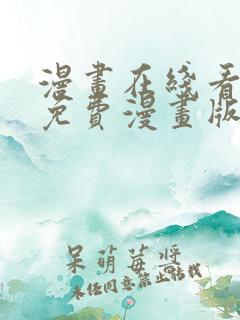 漫畫在綫看
免費漫畫版
呆萌莓醬
未经同意禁止转载